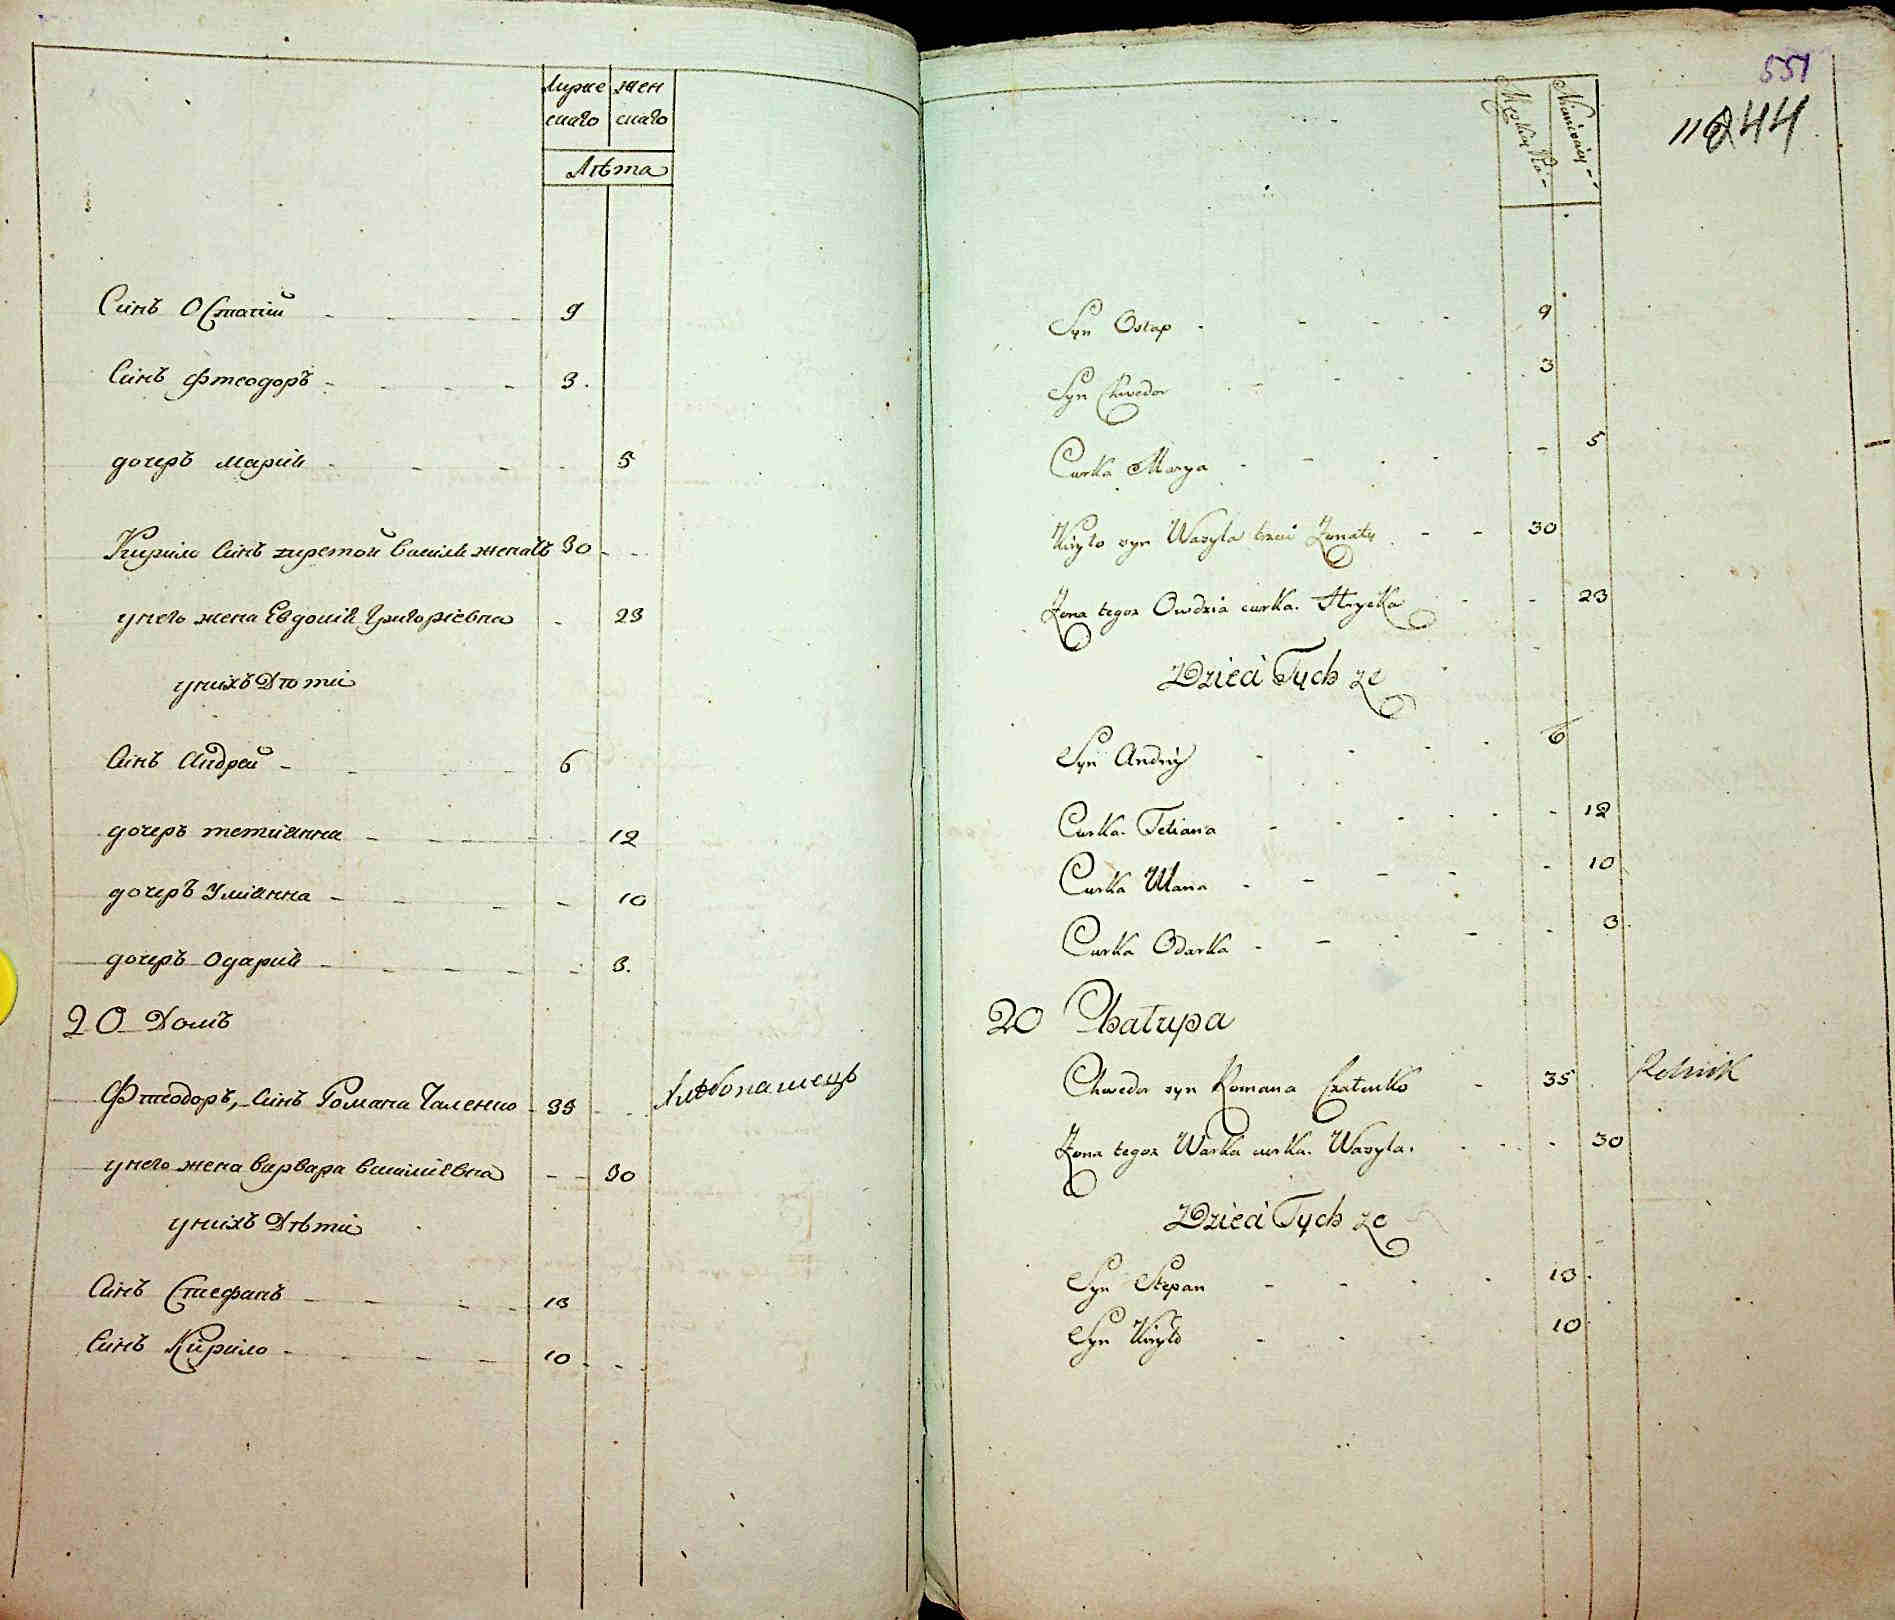 Мужескаго | Женскаго
Лѣта
Синъ Остапій - - - - 9
Синъ Фтеодоръ - - - 3
дочеръ Марія - - - - 5
Кирило Синъ третой Василя женатъ 30 - -
унего жена Евдокія Григоріевна - 23
унихъ Дѣти
Синъ Андрей - - - 6
дочеръ тетианна - - - - 12
дочеръ Улианна - - - - 10
дочеръ Одария - - - - - 3
20 Домъ
Фтеодоръ, Синъ Романа Чаленко 35 - - Хлѣбопашецъ
унего жена Варвара Василіевна - - 30
унихъ Дѣти
Синъ Стефанъ - - - - 13
Синъ Кирило - - - - 10 - - -
551
244
Syn Ostap - - - - 9
Syn Chwedor - - - - 3
Curka Marya - - - - - 5
Kiryło syn Wasyla trzeci Żonaty - - 30
Żona tegoż Owdzia curka Hryćka - - 23
Dzieci Tychże
Syn Andriy - - - - 6
Curka Tetiana - - - - - 12
Curka Ulana - - - - - 10
Curka Odarka - - - - - 3
20 Chałupa
Chwedor syn Romana - 35 Rolnik
Żona tegoż Warka curka Wasyla - - - 30
Dzieci Tychże
Syn Stepan - - - - 13
Syn Kiryło - - - 10